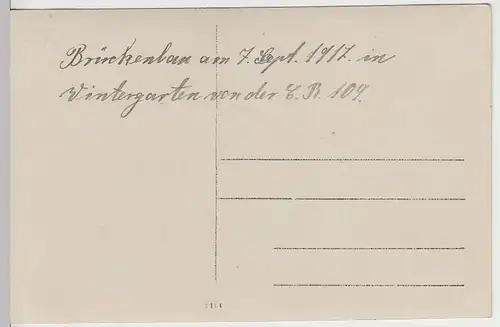 Brückenbau am 7. Sept. 1917. in
Wintergarten von der E. B. 109.